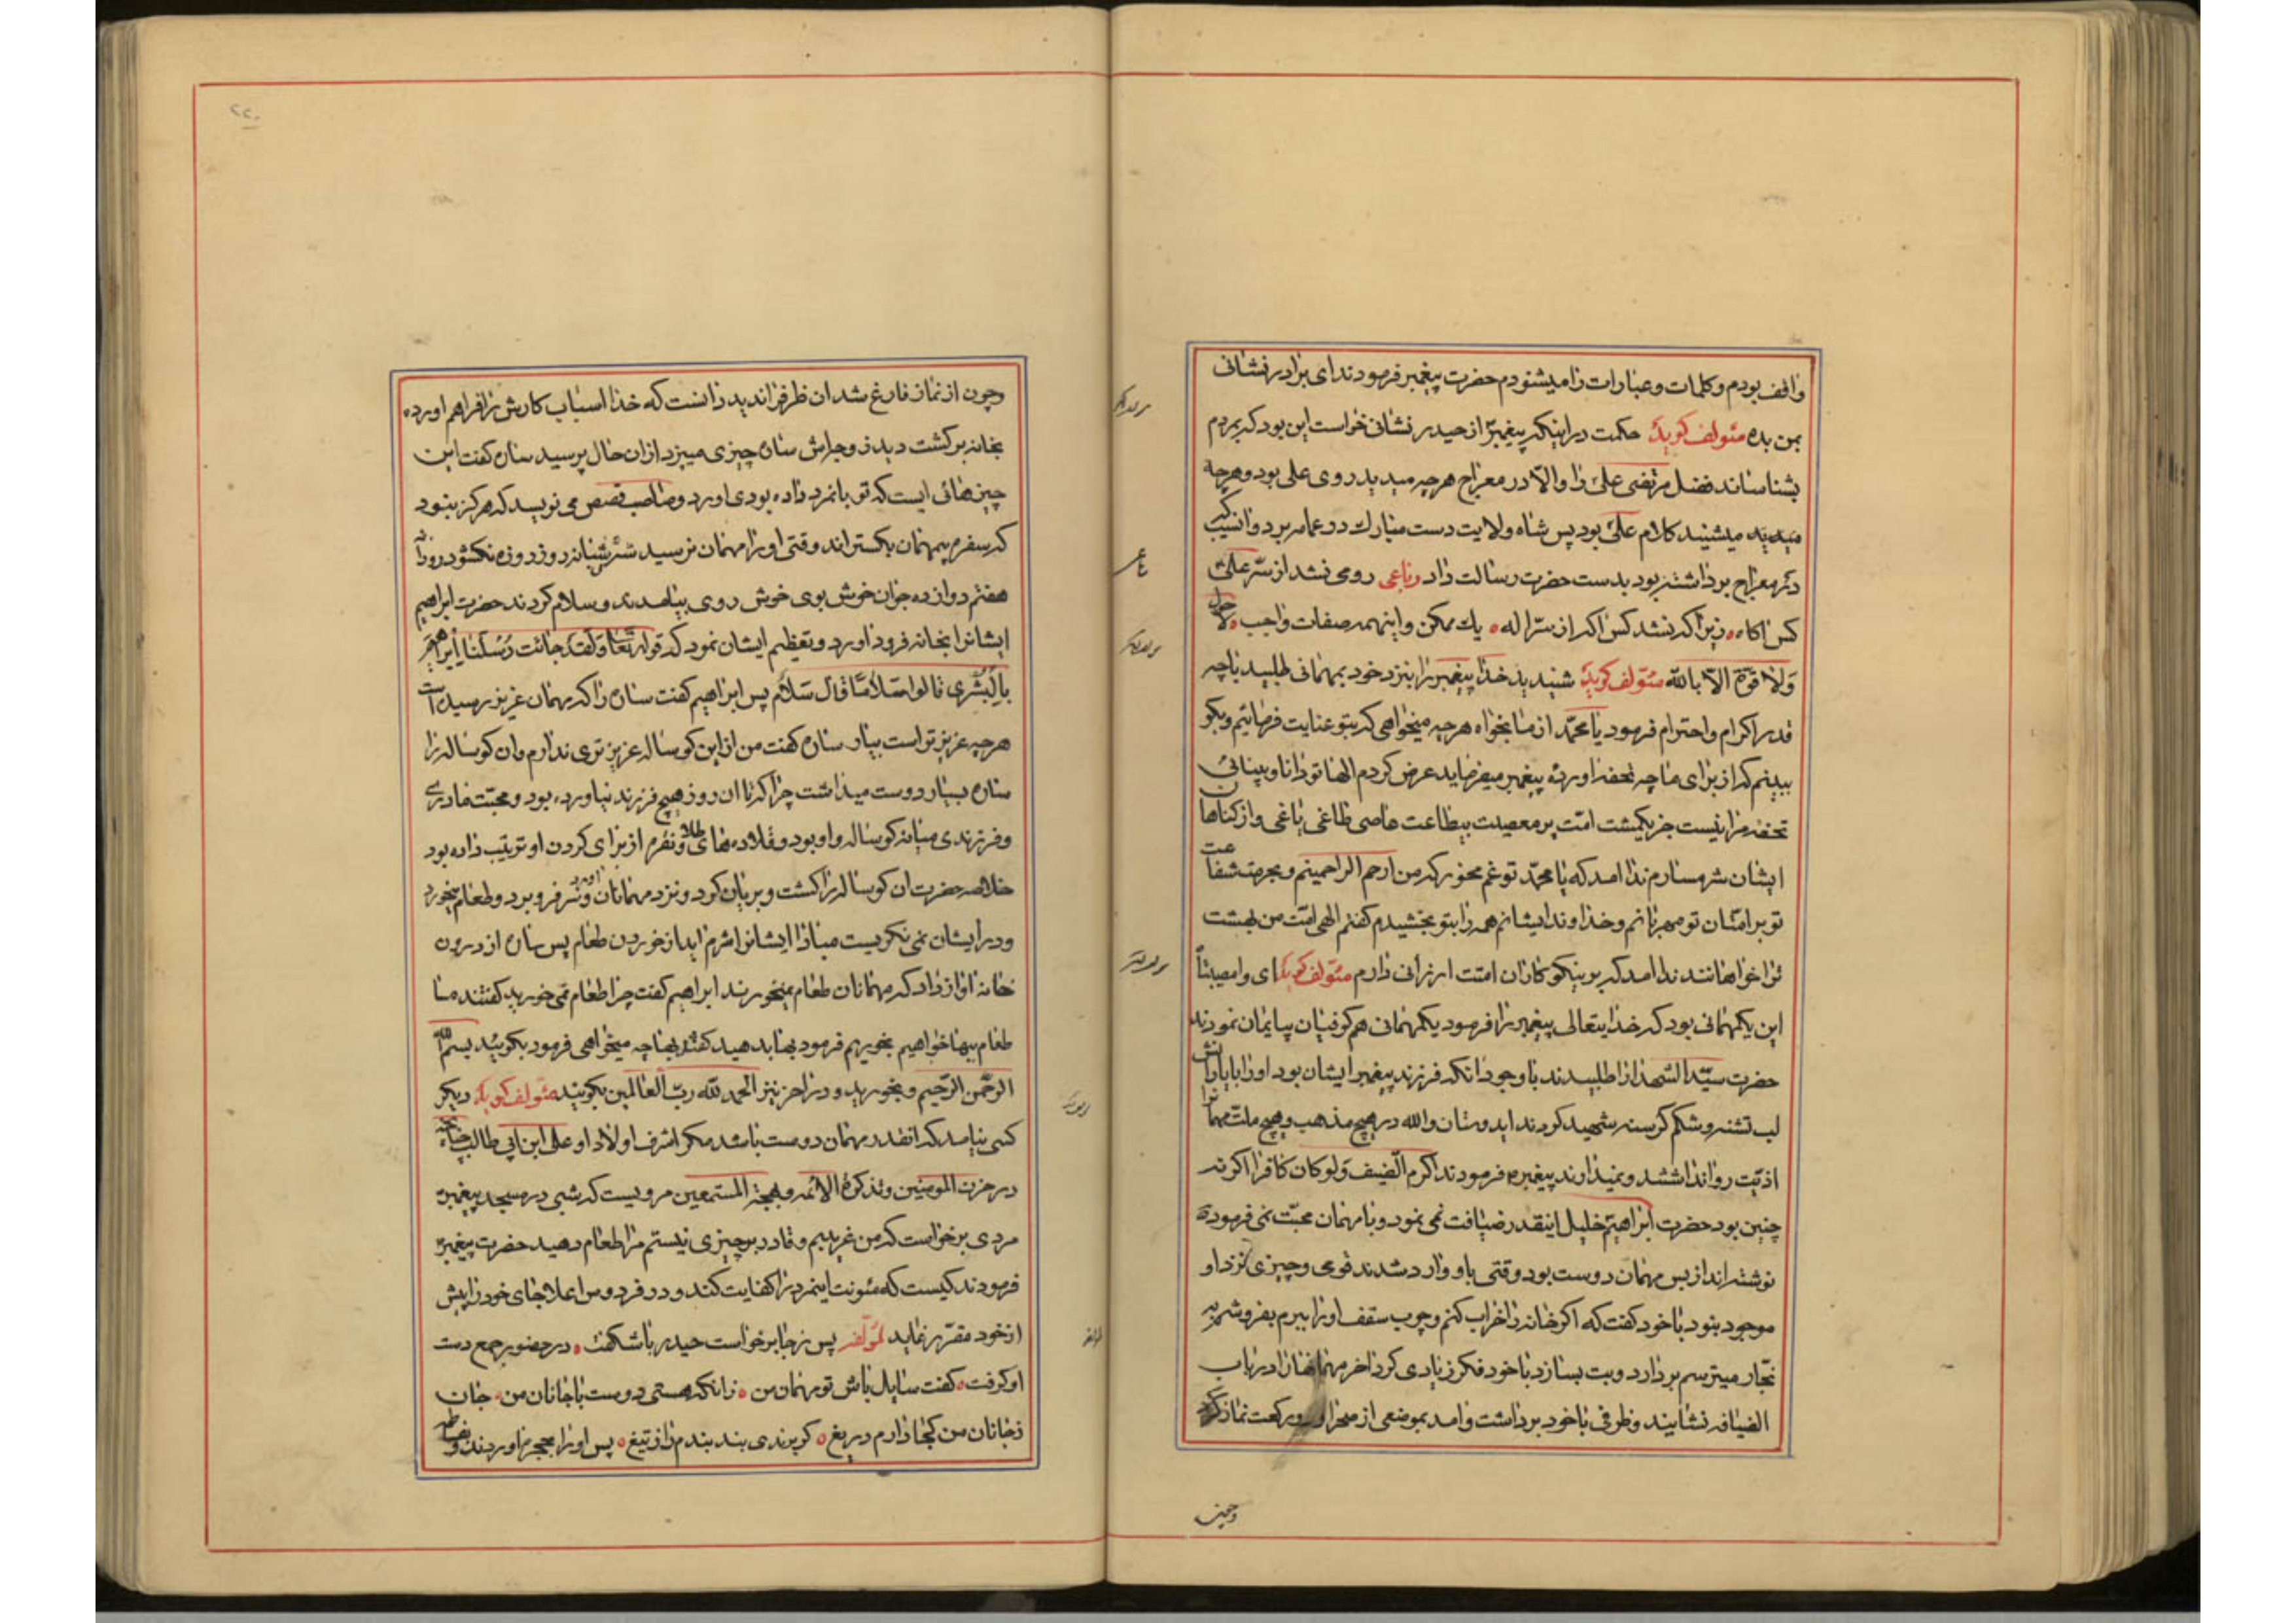 واقف بودم و کلمات و عبارات را میشنودم حضرت پیغمبر فرمودند ای برادر نشانی
بمن بده مئولف گوید حکمت در اینکه پیغمبر از حیدر نشانی خواست این بود که بمردم
بشناساند فضل مرتضی علی را و الا در معراج هرچه میدید روی علی بود و هرچه
میشنید کلام علی بود پس شاه ولایت دست مبارک در عمامه برد و ان سیب که
در معراج برداشته بود بدست حضرت رسالت داد رباعی رومی نشد از سرّ علی
کس اکاه زیرا که نشد کس اکه از سرّ اله یك ممکن و اینهمه صفات واجب لا حول
ولا قوة الا بالله مئولف گوید شنیدید خدا پیغمبر را بنزد خود بمهمانی طلبید با چه
قدر اکرام و احترام فرمود یا محمّد از ما بخواه هرچه میخواهی که بتو عنایت فرمائیم و بکو
ببینم که از برای ما چه تحفه اورده پیغمبر میفرماید عرض کردم الها تو دانا و بینائی
تحفه مرا نیست جز یکمشت امّت پر معصیت بیطاعت عاصی طاغی یاغی و از کناهان
ایشان شرمسارم ندا امد که یا محمّد تو غم مخور که من ارحم الراحمینم و بحرمت شفاعت
تو بر امتّان تو مهربانم و خداوند ایشانم همه را بتو بخشیدم کفتم الهی امّت من بهشت
ترا خواهانند ندا امد که بر نیکوکاران امتت ارزانی دارم مئولف گوید ای وا مصیبتاً
این یکمهمانی بود که خدایتعالی پیغمبر را فرمود یکمهمانی هم کوفیان بیایمان نمودند
حضرت سیّد الشهدا را طلبیدند با وجود انکه فرزند پیغمبر ایشان بود او را با یارانش
لب تشنه و شکم کرسنه شهید کردند ایدوستان والله در هیچ مذهب و هیچ ملت مهمانرا
اذیّت روا نداشتند و نمیدارند پیغمبر فرمودند اکرم الضیف ولو کان کافرا اکر نه
چنین بود حضرت ابراهیم خلیل اینقدر ضیافت نمی نمود و با مهمان محبّت نمی فرمود
نوشته اند از بس مهمان دوست بود وقتی باو وارد شدند قومی و چیزی نزد او
موجود نبود با خود کفت که اکر خانه را خراب کنم و چوب سقف او را ببرم بفروشم به
نجّار میترسم بردارد و بت بسازد با خود فکر زیادی کرد اخر مهمانان را در باب
الضیافه نشانید و ظرفی با خود برداشت و امد بموضعی از صحرا و دو رکعت نماز کرد
وچون
۲۲۰
وچون از نماز فارغ شد ان ظرفرا ندید دانست که خدا اسباب کارش را فراهم اورده
بخانه برکشت دید زوجه اش ساره چیزی میپزد از ان حال پرسید ساره کفت این
چیزهائی ایست که تو بانمرد داده بودی اورد و صاحب قصص می نویسد که هرکز نبود
که سفره بیمهمان بکستراند وقتی او را مهمان نرسید شش شبانه روز روزه نکشود روز
هفتم دوازده جوان خوش بوی خوش روی بیامدند و سلام کردند حضرت ابراهیم
ایشانرا بخانه فرود اورد و تعظیم ایشان نمود که قوله تعا ولقد جائت رسلنا ابراهیم
بالبشری قالوا سلاماً قال سلام پس ابراهیم کفت ساره را که مهمان عزیز رسیده است
هرچه عزیزتر است بیار ساره کفت من از این کوساله عزیزتری ندارم و ان کوساله را
ساره بسیار دوست میداشت چرا که تا ان روز هیچ فرزند نیاورده بود و محبّت مادری
و فرزندی میانه کوساله و او بود و قلاده های طلا و نقره از برای کردن او ترتیب داده بود
خلاصه حضرت ان کوساله را کشت و بریان کرد و نزد مهمانان اورد و سر فرو برد و طعام میخورد
و در ایشان نمی نکریست مبادا ایشانرا شرم اید از خوردن طعام پس ساره از درون
خانه اواز داد که مهمانان طعام نمیخورند ابراهیم کفت چرا طعام نمی خورید کفتند ما
طعام ببها خواهیم بخوریم فرمود بها بدهید کفتند بها چه میخواهی فرمود بکوئید بسم الله
الرحمن الرّحیم و بخورید و در اخر نیز الحمد لله ربّ العالمین بکوئید مئولف گوید دیکر
کسی نیامد که انقدر مهمان دوست باشد مکر اشرف اولاد او علی ابن ابی طالب چنانچه
در حزن المومنین و تذکرة الائمه و بهجة المستمعین مرویست که شبی در مسجد پیغمبر
مردی برخواست که من غریبم و قادر بر چیزی نیستم مرا طعام دهید حضرت پیغمبر
فرمودند کیست که مئونت اینمرد را کفایت کند و در فردوس اعلا جای خود را پیش
از خود مقرّر نماید لمؤلفه پس ز جا برخواست حیدر با شکفت در حضور جمع دست
او کرفت کفت سایل باش تو مهمان من زانکه هستی دوست با جانان من جان
ز جانان من کجا دارم دریغ کر برندی بند بندم را ز تیغ پس او را بحجره اوردند و